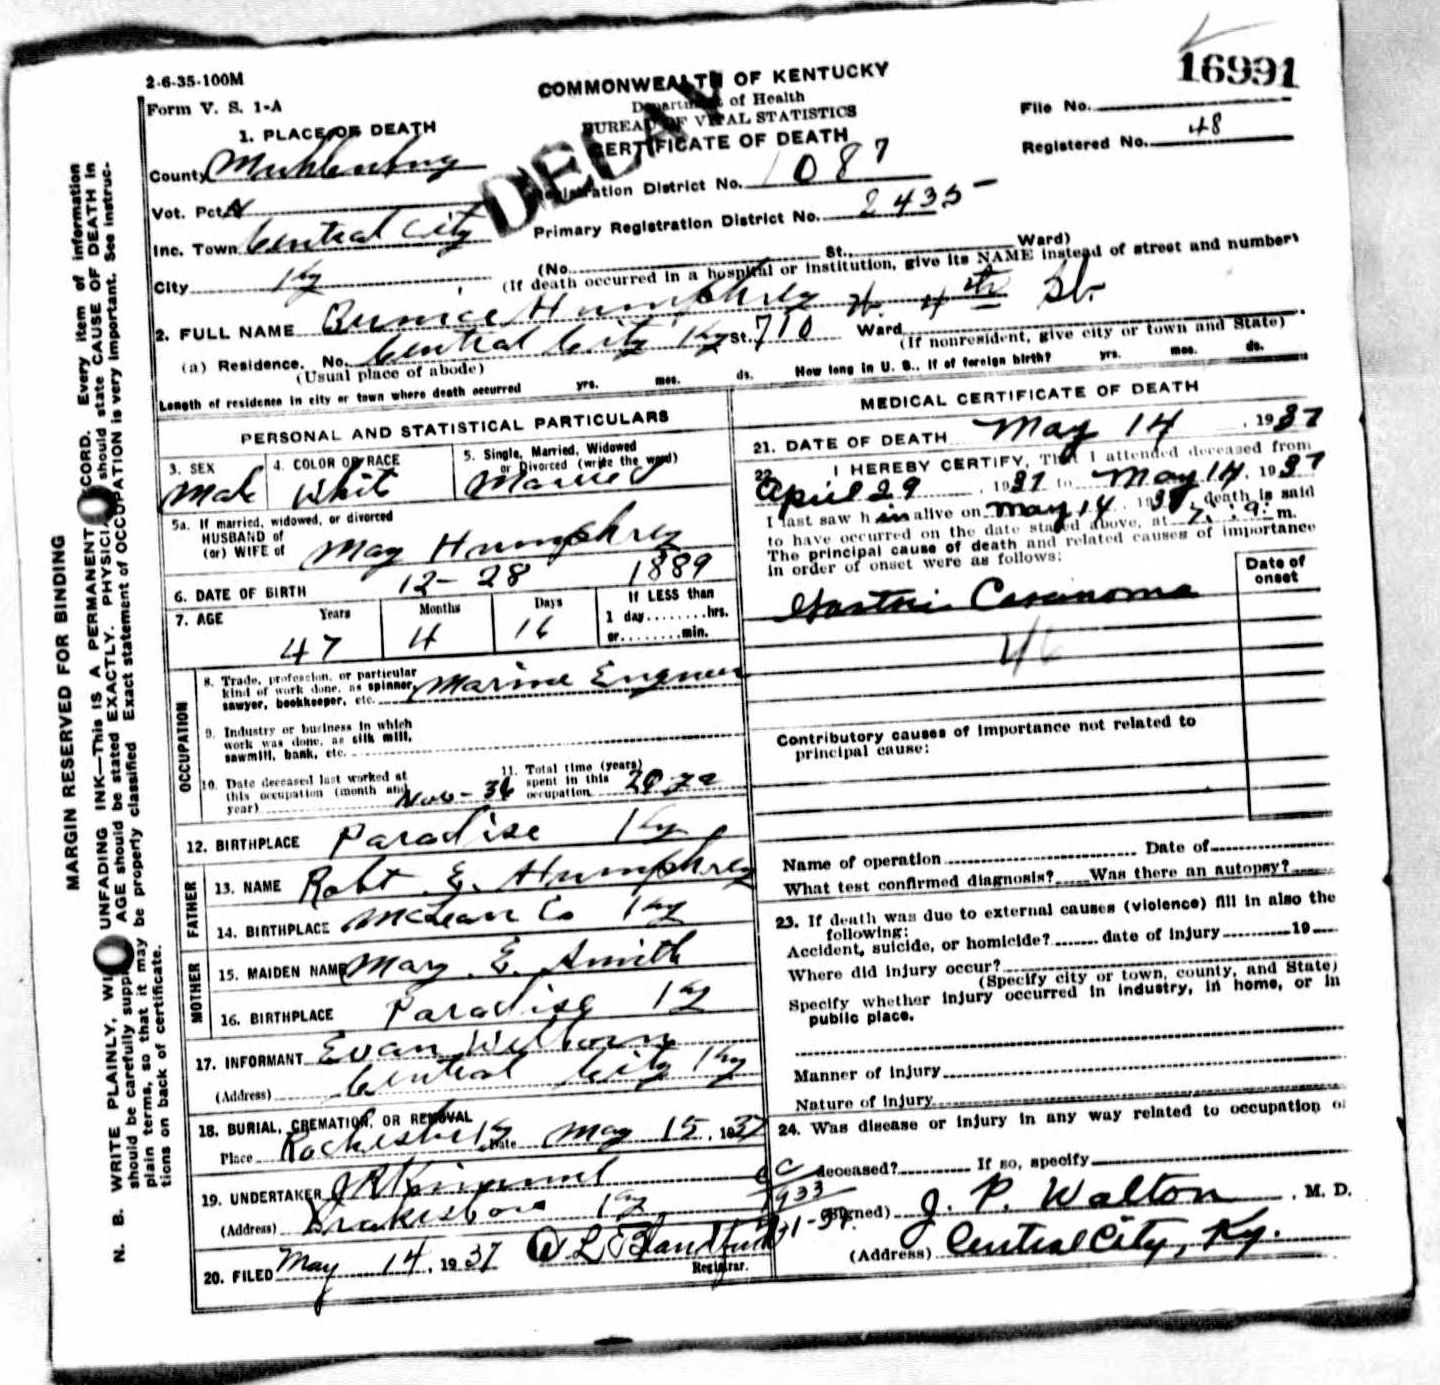 2-6-35-100M
Form V. S. 1-A
COMMONWEALTH OF KENTUCKY
Department of Health
BUREAU OF VITAL STATISTICS
CERTIFICATE OF DEATH
DELAY
16991
File No.
Registered No. 48
1. PLACE OF DEATH
County Muhlenberg
Vot. Pct.
Inc. Town Central City
City Ky
Registration District No. 1087
Primary Registration District No. 2435
(No. St., Ward)
(If death occurred in a hospital or institution, give its NAME instead of street and number)
2. FULL NAME Humphrey 4th St.
(a) Residence. No. Central City Ky St. 710 Ward
(Usual place of abode) (If nonresident, give city or town and State)
Length of residence in city or town where death occurred yrs. mos. ds. How long in U. S., if of foreign birth? yrs. mos. ds.
PERSONAL AND STATISTICAL PARTICULARS
3. SEX Male
4. COLOR OR RACE White
5. Single, Married, Widowed or Divorced (write the word) Married
5a. If married, widowed, or divorced
HUSBAND of
(or) WIFE of May Humphrey
6. DATE OF BIRTH 12-28 1889
7. AGE Years 47 Months 4 Days 16 If LESS than 1 day........hrs. or........min.
OCCUPATION
8. Trade, profession, or particular kind of work done, as spinner, sawyer, bookkeeper, etc. Marine Engineer
9. Industry or business in which work was done, as silk mill, sawmill, bank, etc.
10. Date deceased last worked at this occupation (month and year) Nov-36
11. Total time (years) spent in this occupation
12. BIRTHPLACE Paradise Ky
FATHER
13. NAME Robt E. Humphrey
14. BIRTHPLACE McLean Co Ky
MOTHER
15. MAIDEN NAME Mary E. Smith
16. BIRTHPLACE Paradise Ky
17. INFORMANT Evan Welborn
(Address) Central City Ky
18. BURIAL, CREMATION, OR REMOVAL
Place Date May 15, 1937
19. UNDERTAKER J R Kimmel
(Address) Drakesboro Ky
20. FILED May 14, 1937
Registrar.
MEDICAL CERTIFICATE OF DEATH
21. DATE OF DEATH May 14, 1937
22. I HEREBY CERTIFY, That I attended deceased from
April 29, 1937 to May 14, 1937
I last saw him alive on May 14 1937, death is said
to have occurred on the date stated above, at m.
The principal cause of death and related causes of importance
in order of onset were as follows:
Date of onset
Gastric Carcinoma
46
Contributory causes of importance not related to
principal cause:
Name of operation Date of
What test confirmed diagnosis? Was there an autopsy?
23. If death was due to external causes (violence) fill in also the
following:
Accident, suicide, or homicide? date of injury 19
Where did injury occur?
(Specify city or town, county, and State)
Specify whether injury occurred in industry, in home, or in
public place.
Manner of injury
Nature of injury
24. Was disease or injury in any way related to occupation of
deceased? If so, specify
(Signed) J. P. Walton, M. D.
(Address) Central City, Ky.
MARGIN RESERVED FOR BINDING
N. B. WRITE PLAINLY, WITH UNFADING INK—THIS IS A PERMANENT RECORD. Every item of information
should be carefully supplied. AGE should be stated EXACTLY. PHYSICIANS should state CAUSE OF DEATH in
plain terms, so that it may be properly classified. Exact statement of OCCUPATION is very important. See instruc-
tions on back of certificate.